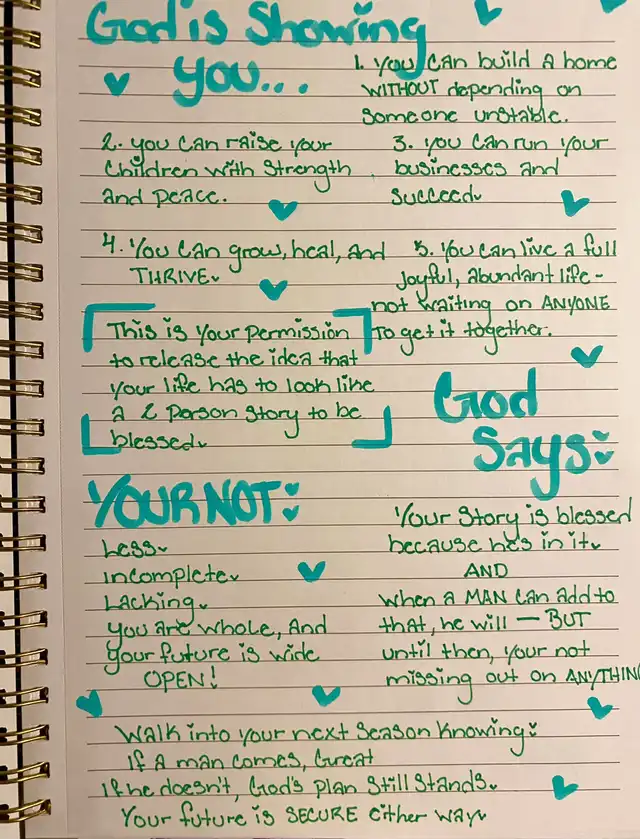 God is Showing
you...
1. You can build a home
WITHOUT depending on
someone unstable.
2. you can raise your
Children with Strength
and peace.
3. you can run your
businesses and
succeed.
4. You can grow, heal, and
THRIVE.
5. You can live a full
joyful, abundant life-
not waiting on ANYONE
to get it together.
This is your permission
to release the idea that
your life has to look like
a 2 person story to be
blessed.
God
Says:
YOUR NOT:
Less.
incomplete.
Lacking.
you are whole, and
your future is wide
OPEN!
Your Story is blessed
because he's in it.
AND
when a MAN can add to
that, he will — BUT
until then, your not
missing out on ANYTHING
Walk into your next season knowing:
If a man comes, Great
If he doesn't, God's plan Still Stands.
Your future is SECURE either way.